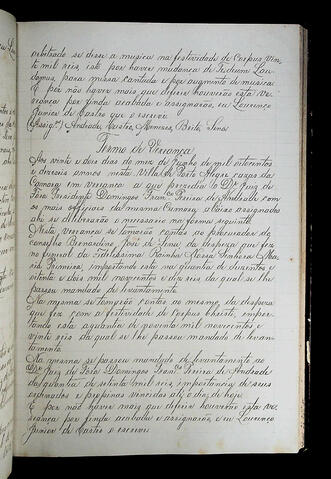 arbitrado se desse a musica na festividade de Corpus vin-
te mil reis isto por haver mudança de Tedeum Lau-
damus, para missa cantada e por augmento de musica
E por não haver mais que deferir houverão esta ve-
reança por finda acabada e assignarão, eu Lourenço
Junior de Castro que o escrevi
(Assig.) Andrade, Castro, Menezes, Brito, Lima
Termo de Vereança
Aos vinte e dois dias do mez de Junho de mil oitocentos
e dezeseis annos nesta Villa de Porto Alegre cazas da
Camara em vereança a que prezedio o Dr. Juiz de
Fora Presidente Domingos Fran.co Pereira de Andrade com
os mais officiaes da mesma Camara, abaixo assignados
ahi se diliberação o necessario na forma seguinte.
Nesta vereança se tomarão contas ao procurador do
conselho Bernardino José de Lima da despeza que fez
no funeral da fidelissima Rainha Nossa Senhora Ma-
ria Primeira, importando esta na quantia de duzentos e
setenta e dois mil novecentos e dez reis da qual se lhe
passou mandado de levantamento.
Na mesma se tomarão contas ao mesmo, da despeza
que fez com a festividade de Corpus Christi, impor-
tando esta a quantia de noventa mil novecentos e
vinte reis da qual se lhe passou mandado de levan-
tamento.
Na mesma se passou mandado de levantamento ao
Dr. Juiz de Fora Domingos Fran.co Pereira de Andrade
da quantia de setenta mil reis, importancia de seus
ordenados e propinas vencidas até o dia de hoje
E por não haver mais que deferir houverão esta ve-
reança por finda acabada e assignarão, e eu Lourenço
Junior de Castro o escrevi